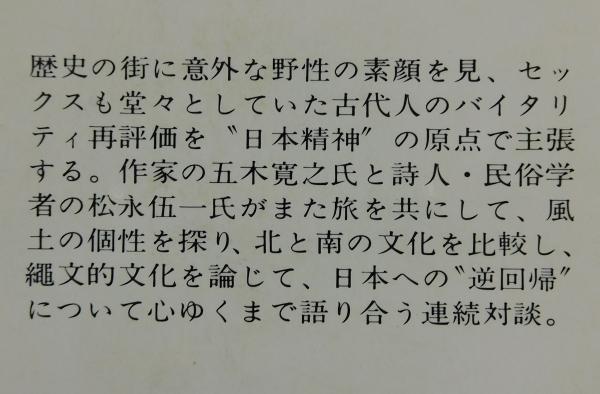 歴史の街に意外な野性の素顔を見、セッ
クスも堂々としていた古代人のバイタリ
ティ再評価を〝日本精神〟の原点で主張
する。作家の五木寛之氏と詩人・民俗学
者の松永伍一氏がまた旅を共にして、風
土の個性を探り、北と南の文化を比較し、
縄文的文化を論じて、日本への〝逆回帰〟
について心ゆくまで語り合う連続対談。